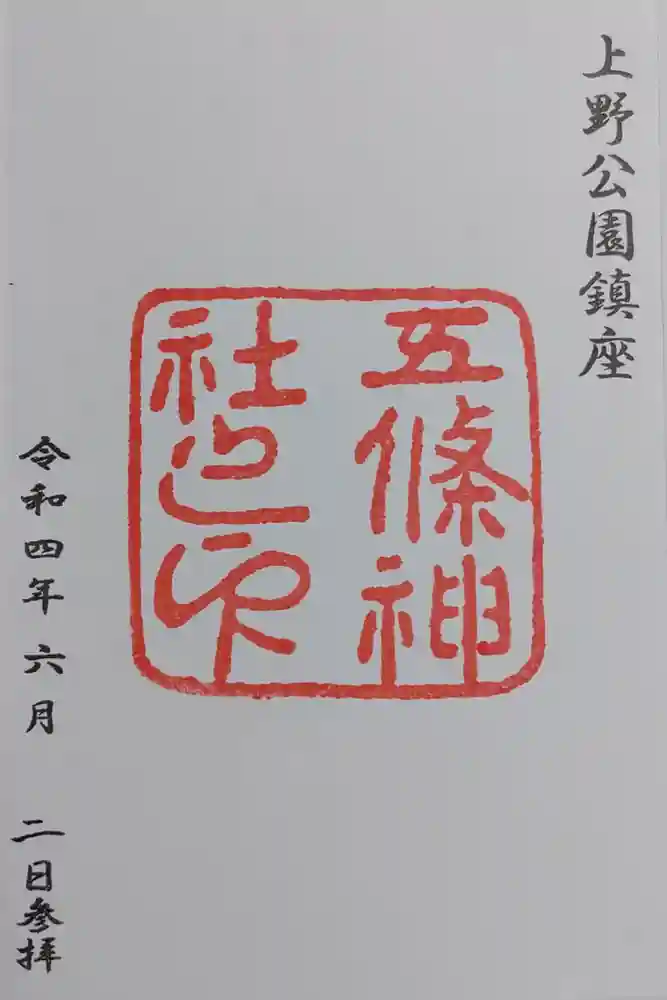 上野公園鎮座
五條神
社之印
令和四年六月二日参拝